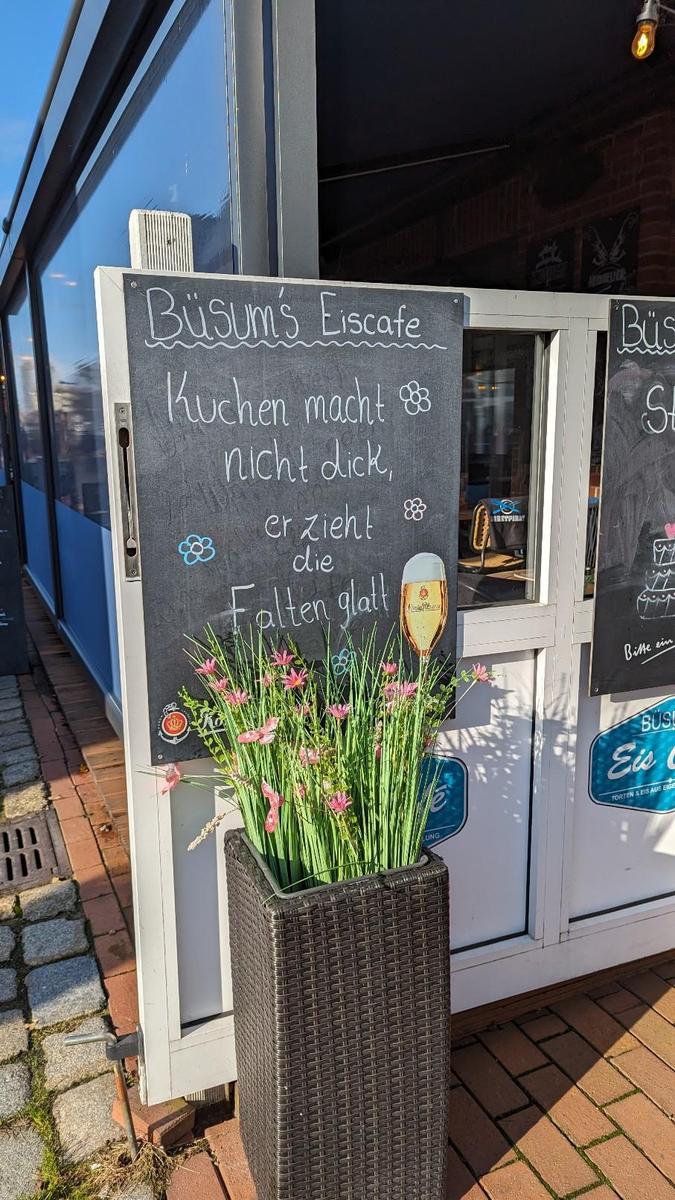 Büsum's Eiscafe
Kuchen macht
nicht dick,
er zieht
die
Falten glatt
BÜS
Eis
TORTEN & EIS AUS EIGE
Bitte ein